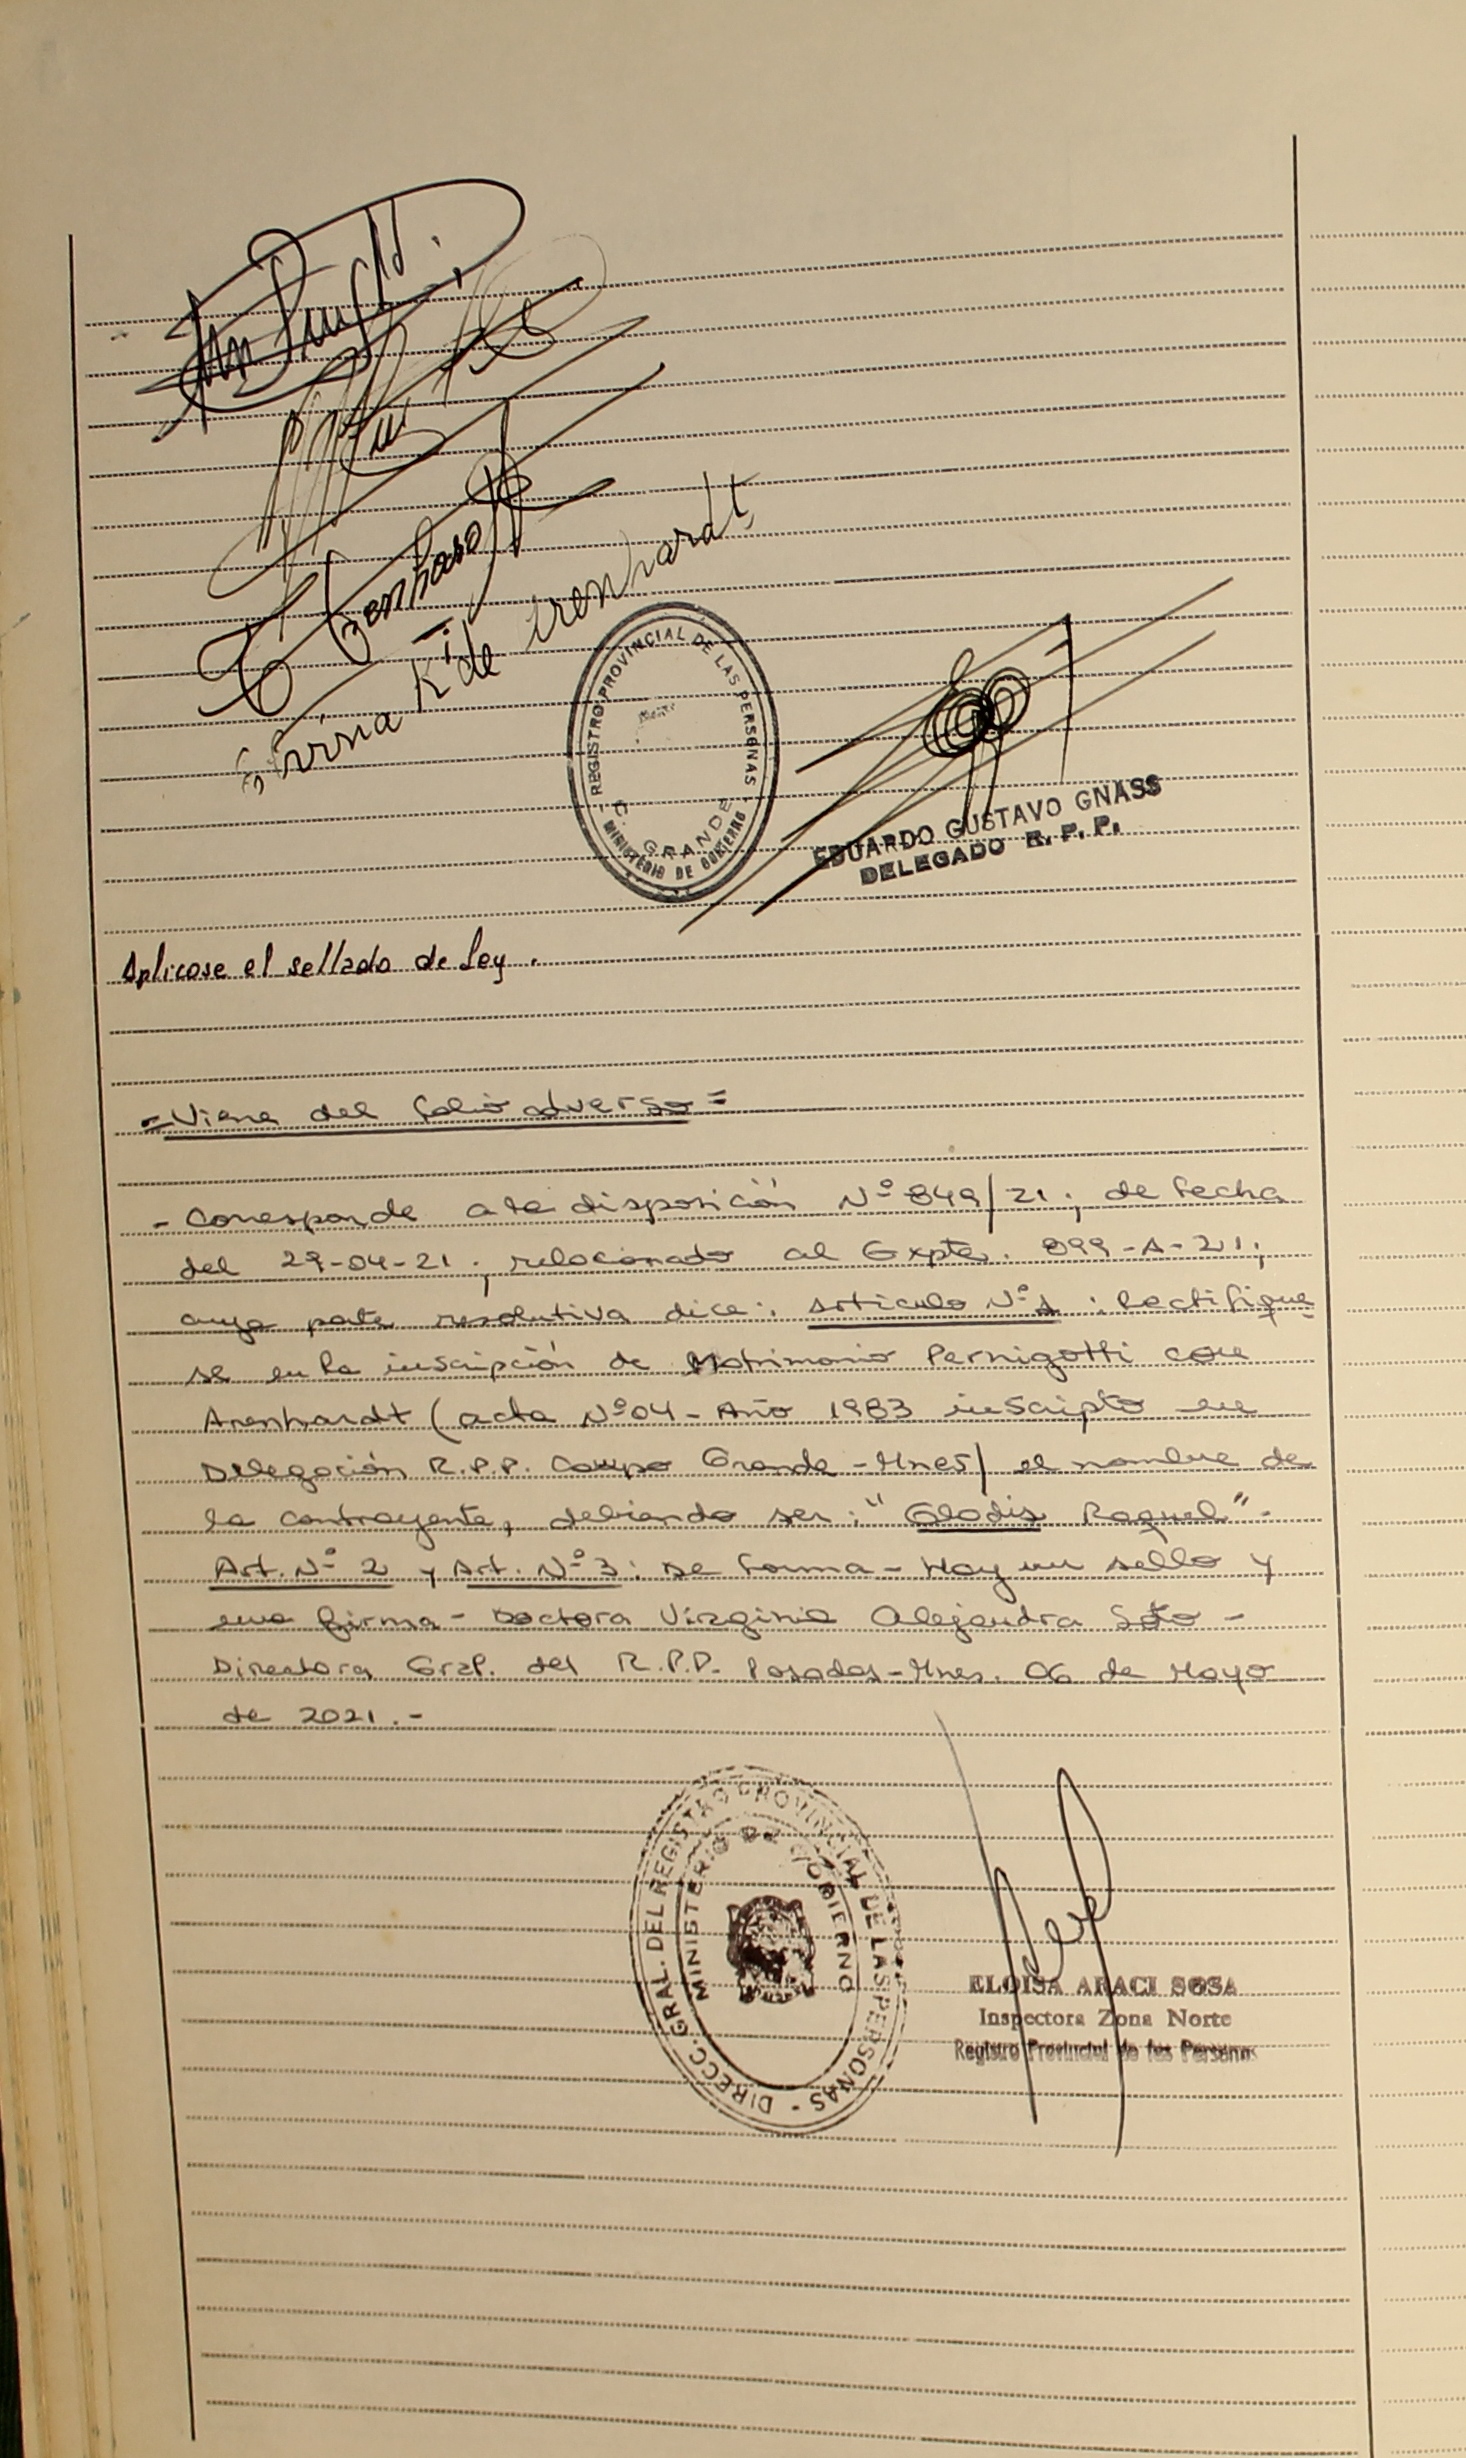 Erna K. de Arenhardt
- REGISTRO PROVINCIAL DE LAS PERSONAS -
C. GRANDE
MINISTERIO DE GOBIERNO
EDUARDO GUSTAVO GNASS
DELEGADO R. P. P.
Aplicase el sellado de ley.
= Viene del folio adverso =
- Corresponde a la disposición N° 849/21; de fecha
del 29-04-21; relacionado al Expte. 899-A-21;
cuya parte resolutiva dice: Articulo N° 1: Rectifique
se en la inscripción de Matrimonio Pernigotti con
Arenhardt (acta N° 04 - Año 1983 inscripto en
Delegación R.P.P. Campo Grande - Mnes) el nombre de
la contrayente, debiendo ser: "Gladis Raquel".
Art. N° 2 y Art. N° 3: De forma - Hay un sello y
una firma - Doctora Virginia Alejandra Soto -
Directora Gral. del R.P.P. Posadas - Mnes. 06 de Mayo
de 2021. -
DIRECC. GRAL. DEL REGISTRO PROVINCIAL DE LAS PERSONAS -
MINISTERIO DE GOBIERNO
ELOISA ARACI SOSA
Inspectora Zona Norte
Registro Provincial de las Personas